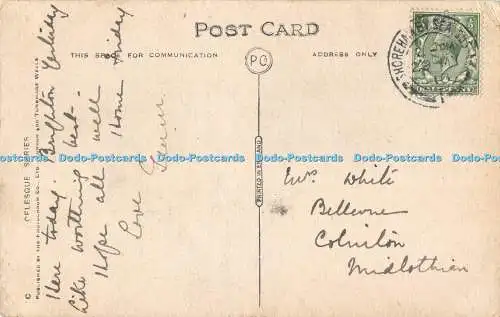 POST CARD
THIS SPACE FOR COMMUNICATION
ADDRESS ONLY
PO
SHOREHAM BY SEA
Here today. Brighton
Like Worthing best.
Hope all well
Home Friday
Love
Mrs White
Bellevue
Colinton
Midlothian
CELESQUE SERIES
PUBLISHED BY THE PHOTOCHROM CO., LTD., LONDON AND TUNBRIDGE WELLS
PRINTED IN ENGLAND
C
Postcards Dodo-Postcards Dodo-Postcards Dodo-Postcards Dodo-Postcards Dodo